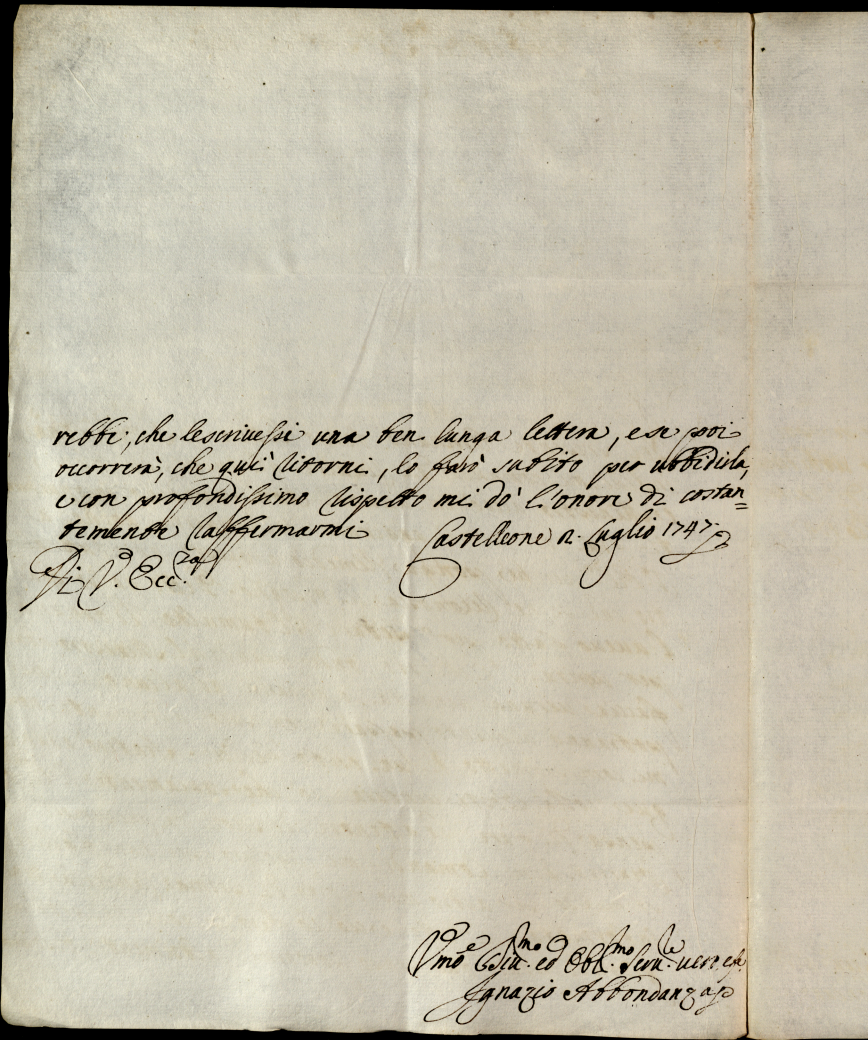 rebbe, che le scrivessi una ben lunga lettera, e se poi
occorrerà, che quì ritorni, lo farò subito per ubbidirla,
e con profondissimo rispetto mi dò l'onore di costan=
temente raffermarmi Castelleone 2. Luglio 1747.
Di V. Ecc.za
Vmo ed Obl.mo Seru.re uero
Ignazio Abbondanza